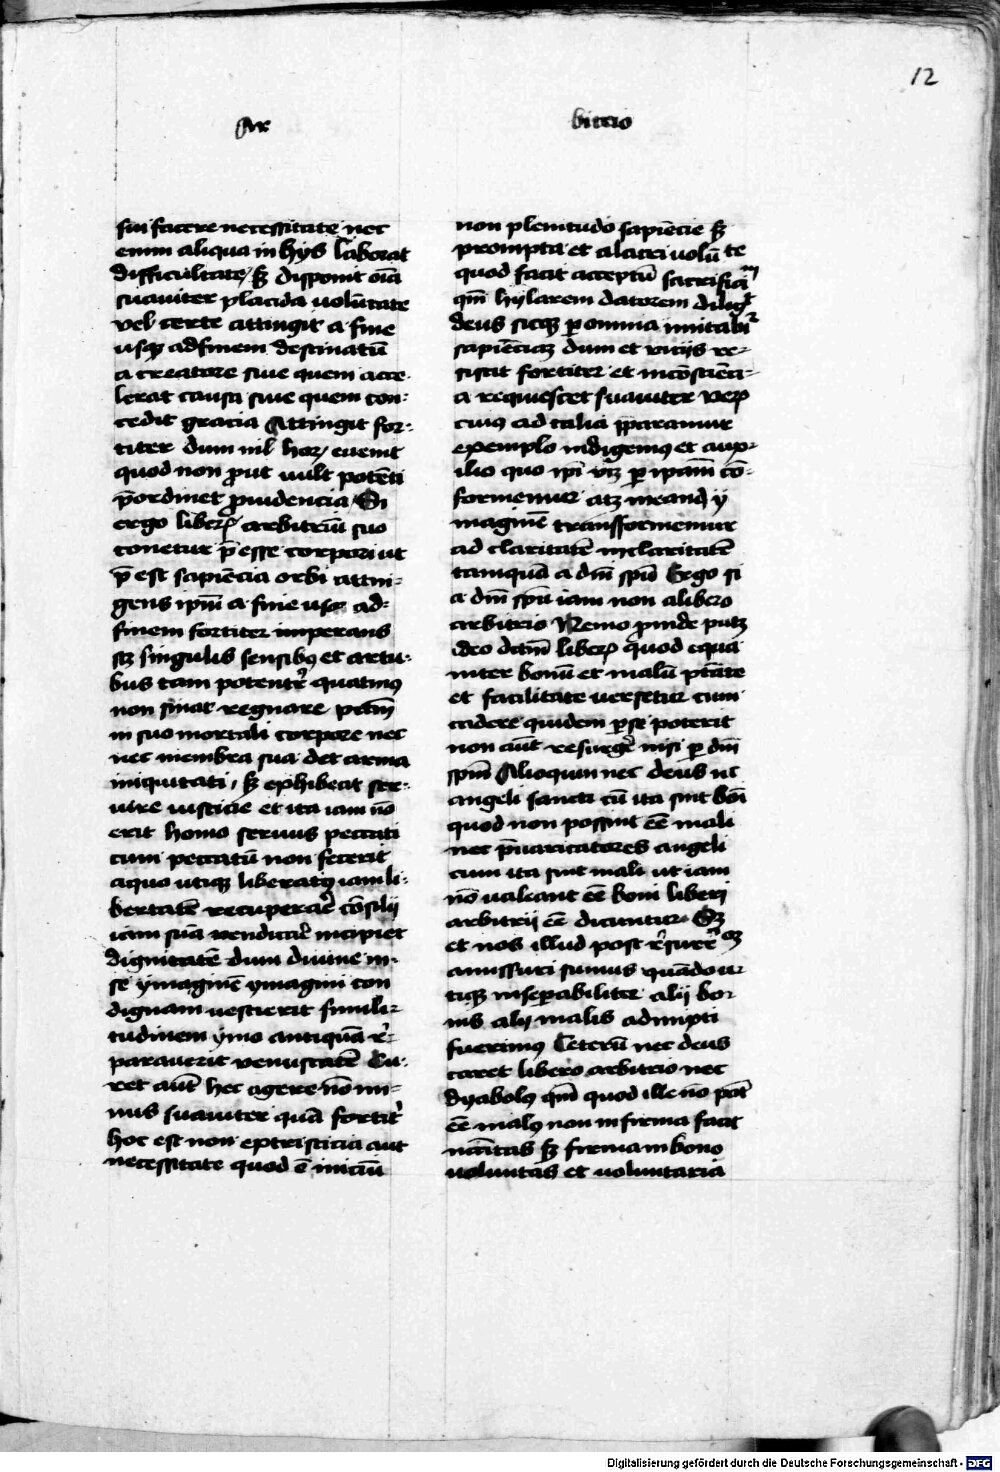 12
Ar
bitrio
sui facere necessitate nec
enim aliqua in hijs laborat
difficultate / sꝫ disponit oīa
suauiter placida volūtate
vel certe attingit a fine
usqꝫ ad finem destinatū
a creatore siue quem acce-
lerat causa siue quem con-
cedit gracia Attingit for-
titer dum nil horꝝ euenit
quod non ꝓut vult potēti
p̄ordinet ꝓuidencia / Si
ergo liberꝝ arbitriū suo
conetur p̄esse corpori ut
p̄est sapiēcia orbi attin-
gens ip̄m a fine usqꝫ ad-
finem fortiter imperans
scꝫ singulis sensibꝰ et artu-
bus tam potentᵉr quatinꝰ
non sinat regnare pctām
in suo mortali corpore nec
nec membra sua det arma
iniquitati / sꝫ exhibeat ser-
uire iusticie et ita iam nō
erit homo seruus peccati
cum peccatū non fecerit
a quo utiqꝫ liberatꝰ iam li-
bertatē recuperaᵉ cōsilij
iam suā vendicaᵉ incipiet
dignitatē dum diuine in-
se ymaginē ymagini con
dignam uestierit simili-
tudinem ymo antiquā rᵉ-
parauerit venustatē Cu-
ret aut̄ hec agere nō mi-
nus suauiter quā fortitᵉ
hoc est non ex tristicia aut
necessitate quod ē iniciū
non plenitudo sapiēcie sꝫ
prompta et alacri uolū te
quod facit acceptū sacrificiū
qm̄ hylarem datorem diligᵗ
deus sicqꝫ ꝑ omnia imitabiᵗʳ
sapiēciaꝫ dum et vicijs re-
sistit fortiter et in cōsciēci-
a requiescet suauiter Verꝝ
cuius ad talia p̄paramur
exemplo indigemꝰ et aux-
ilio quo ip̄i vꝫ ꝑ ip̄am cō-
formemur atqꝫ in eandē y
maginē transformemur
ad claritatē in claritatē
tamquā a dn̄i sp̄u Ergo si
a dn̄i sp̄u iam non a libero
arbitrio Nemo ꝓinde putꝫ
ideo dictūm liberꝝ quod equa
inter bonū et malū ptāte
et facilitate uersetur cum
cadere quidem ꝑ se poterit
non aut̄ resurgᵉ nisi ꝑ dn̄i
sp̄m Alioquin nec deus nec
angeli sancti cū ita sint boni
quod non possint eē mali
nec p̄uaricatores angeli
cum ita sint mali ut iam
nō ualeant eē boni liberi
arbitrij eē dicuntur Sꝫ
et nos illud post rᵉsurrᵉcᵒꝫ
amissuri sumus quādo u-
tiqꝫ insepabiliter alij bo-
nis alij malis admixti
fuerimꝰ Ceterū nec deus
caret libero arbitrio nec
dyabolꝰ qm̄ quod ille nō pot̄
eē malꝰ non infirma facit
ncc̄itas sꝫ firma in bono
uoluntas et uoluntaria
Digitalisierung gefördert durch die Deutsche Forschungsgemeinschaft - DFG